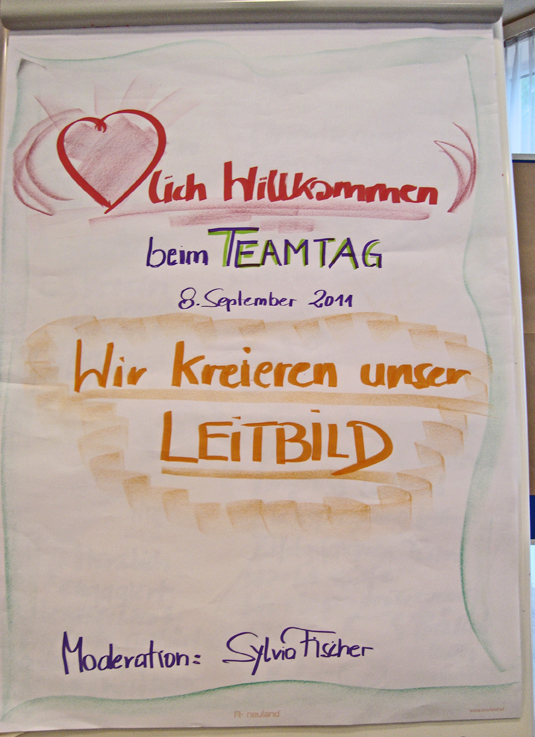 lich Willkommen
beim TEAMTAG
8. September 2011
Wir kreieren unser
LEITBILD
Moderation: Sylvia Fischer
neuland